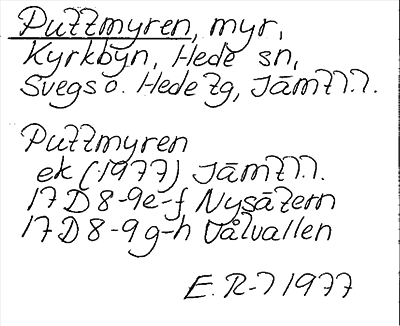 Puttmyren, myr,
Kyrkbyn, Hede sn,
Svegs o. Hede tg, Jämtl.
Puttmyren
ek (1977) Jämtl.
17D 8-9e-f Nysätern
17D 8-9g-h Vålvallen
E. R-l 1977